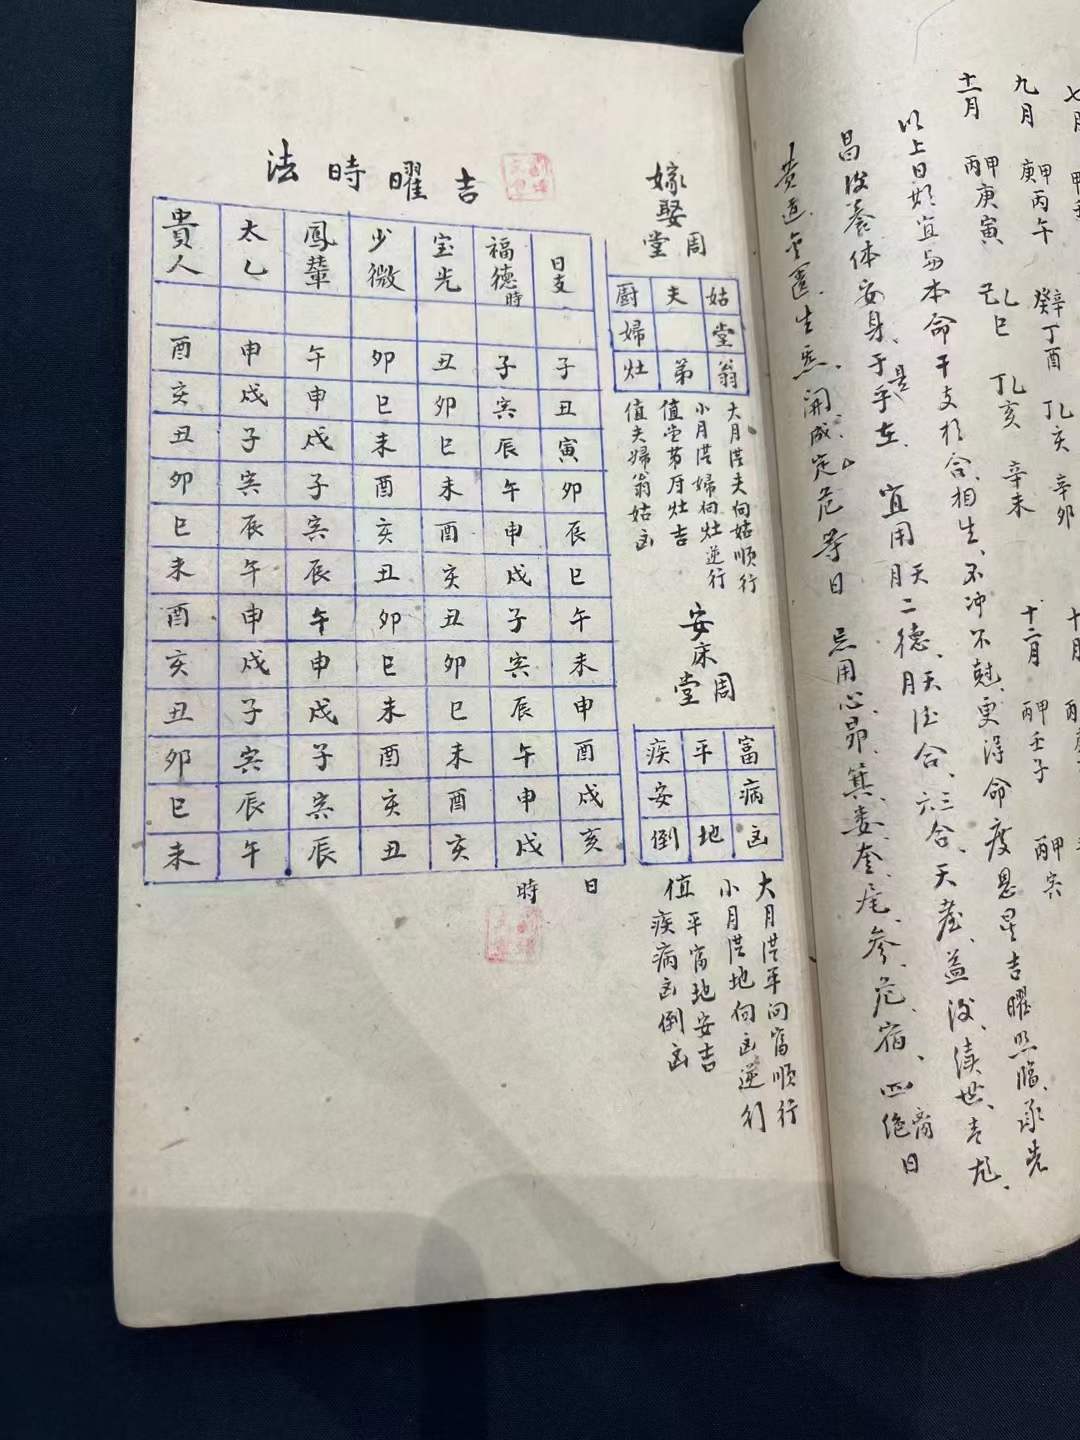 七月
九月 庚甲丙午 癸丁酉 丁乙亥 辛卯
十一月 丙甲庚寅 己乙巳 丁乙亥 辛未
十月
十二月 丙甲壬子 丙甲寅
以上日期宜与本命干支相合、相生、不冲不尅更得命度恩星吉曜照临
昌 体安身于手左 是 宜用天月二德、天月德合、三六合、天 益 续世
黄道 生 開成定危等日 忌用心昴、箕婁奎尾、参危宿、四 绝 日
嫁娶周堂
厨 夫 姑
婦 堂
灶 弟 翁
大月從夫向姑順行
小月從婦向灶逆行
值堂弟厨灶吉
值夫婦翁姑凶
安床周堂
疾 平 富
安 病
倒 地 凶
大月從平向富順行
小月從地向凶逆行
值平富地安吉
疾病凶倒凶
吉曜時法
日支 福德時 宝光 少微 鳳輦 太乙 貴人
子 子 丑 卯 午 申 酉
丑 寅 卯 巳 申 戌 亥
寅 辰 巳 未 戌 子 丑
卯 午 未 酉 子 寅 卯
辰 申 酉 亥 寅 辰 巳
巳 戌 亥 丑 辰 午 未
午 子 丑 卯 午 申 酉
未 寅 卯 巳 申 戌 亥
申 辰 巳 未 戌 子 丑
酉 午 未 酉 子 寅 卯
戌 申 酉 亥 寅 辰 巳
亥 戌 亥 丑 辰 午 未
日 時